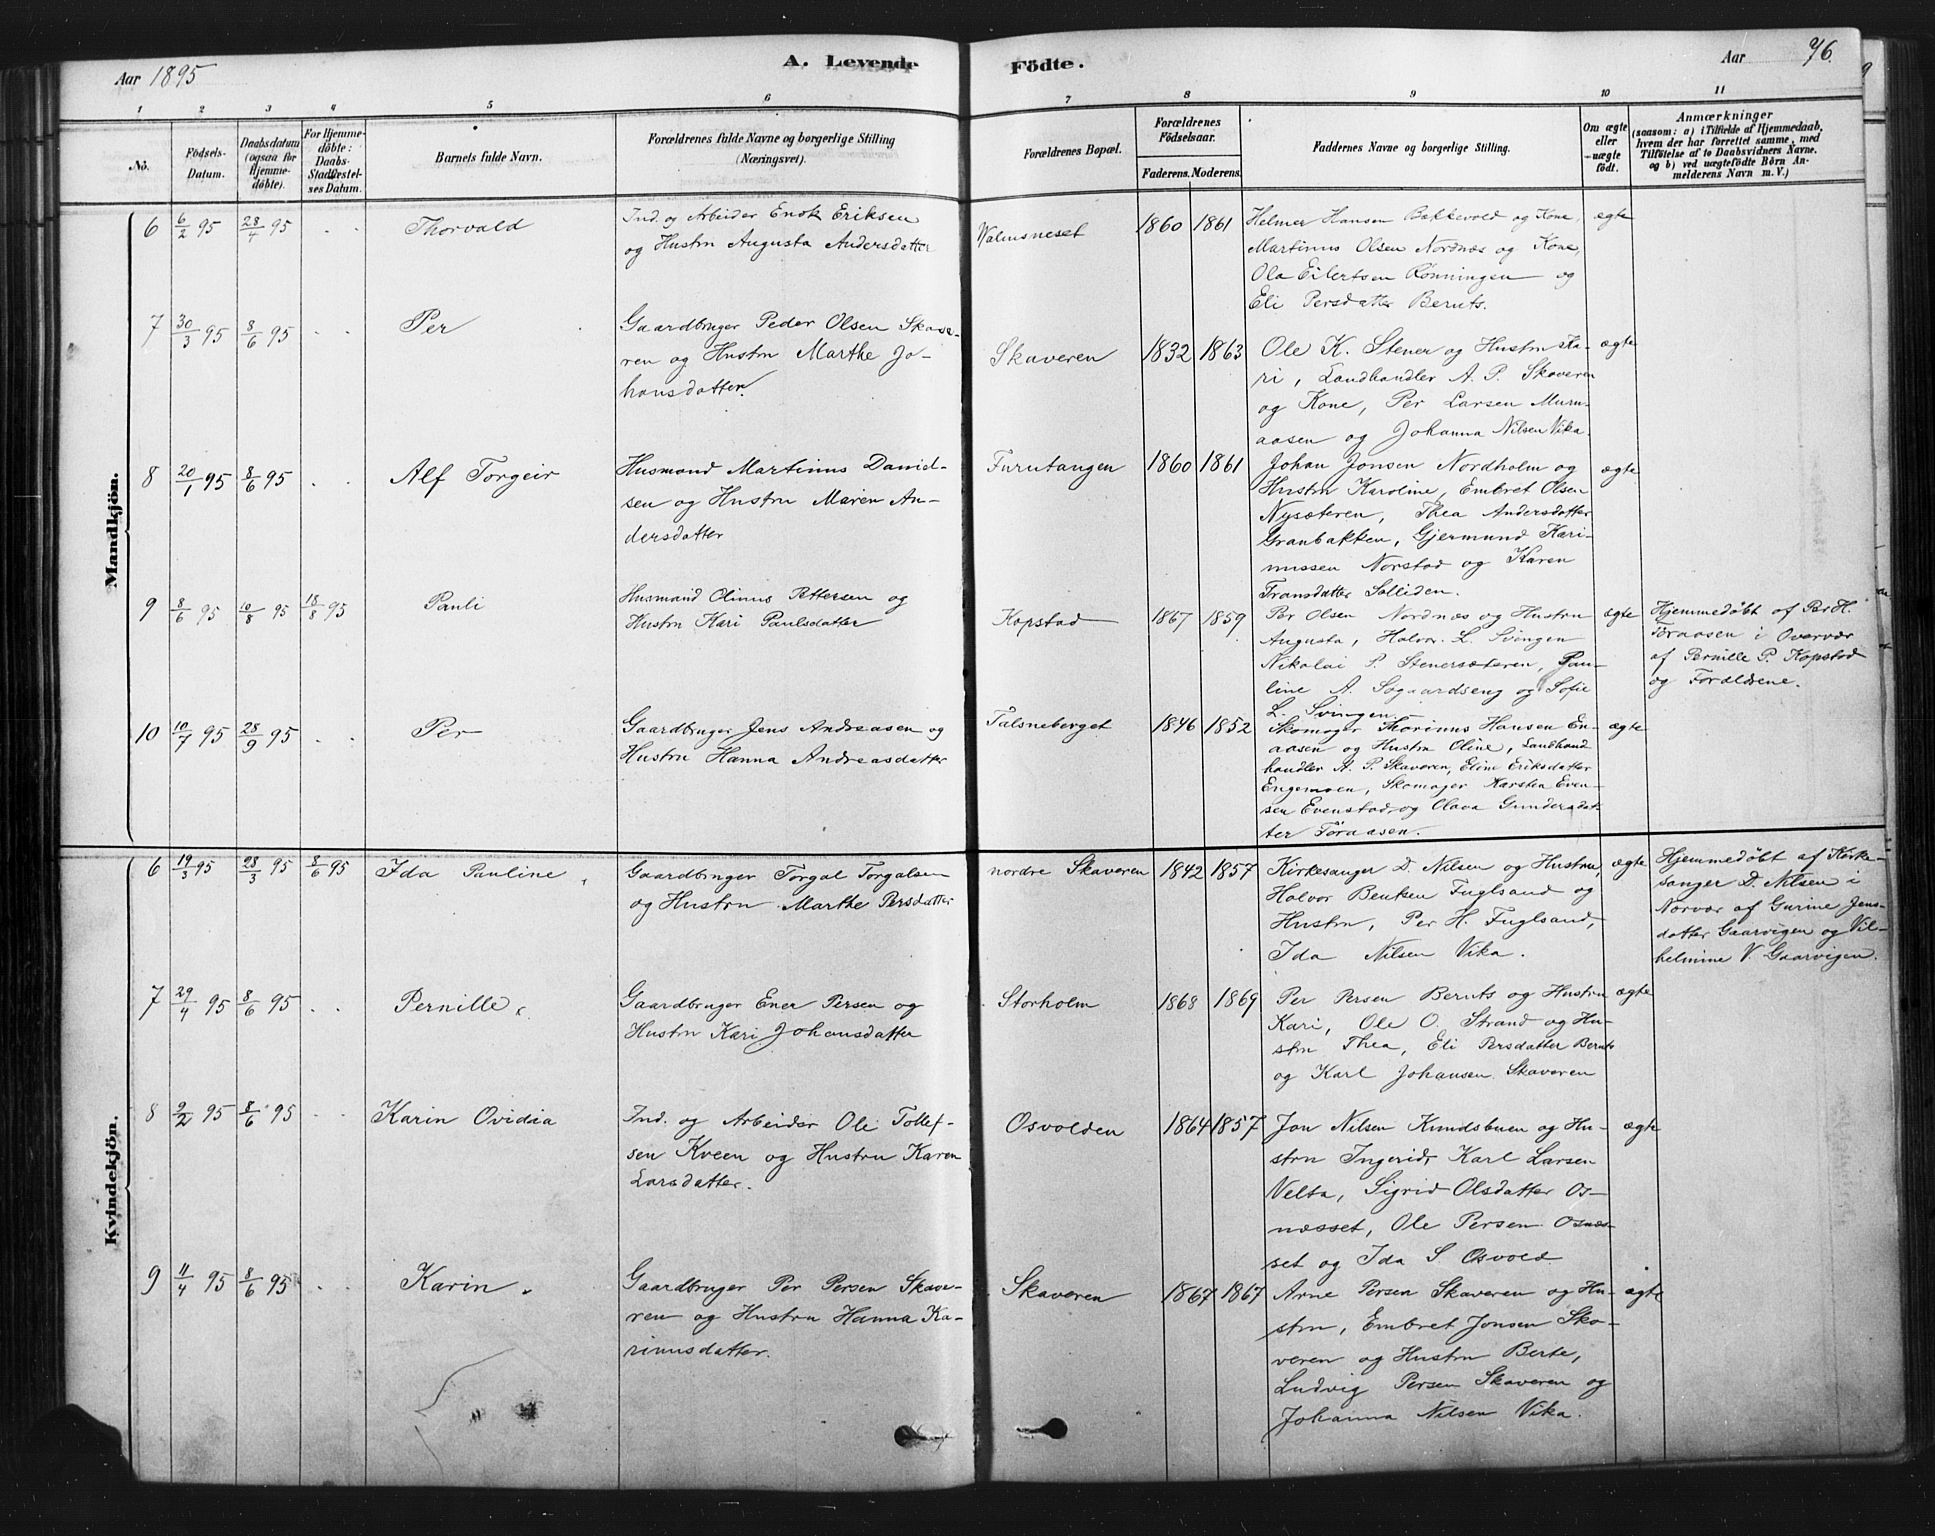 Aar 1895
A. Levende
Födte.
Aar
76.
1 2 3 4 5 6 7 8 9 10 11
No.
Födsels-
Datum.
Daabsdatum
(ogsaa for
Hjemme-
döbte).
For Hjemme-
döbte:
Daabs-
Stadfæstel-
ses Datum.
Barnets fulde Navn.
Forældrenes fulde Navne og borgerlige Stilling
(Næringsvei).
Forældrenes Bopæl.
Forældrenes
Födselsaar.
Faderens. Moderens.
Faddernes Navne og borgerlige Stilling.
Om ægte
eller
uægte
födt.
Anmærkninger
(saasom: a) i Tilfælde af Hjemmedaab,
hvem der har forrettet samme, med
Tilföielse af to Daabsvidners Navne.
og b) ved uægtefödte Börn An-
melderens Navn m. V.)
Mandkjön.
6 6/2 95 28/4 95 . . Thorvald
Ind. og Arbeider Enok Eriksen
og Hustru Augusta Andersdatter
Malmsneset 1860 1861
Helmer Hansen Bakkevold og Kone,
Martinus Olsen Nordnæs og Kone,
Ola Eilertsen Rønningen og
Eli Persdatter Beruts.
ægte
7 30/3 95 8/6 95 . . Per
Gaardbruger Peder Olsen Skave-
ren og Hustru Marthe Jo-
hansdatter.
Skaveren 1832 1863
Ole K. Stener og Hustru Ka-
ri, Landhandler A. P. Skaveren
og Kone, Per Larsen Muru-
aasen og Johanna Nilsen Vika.
ægte
8 20/1 95 8/6 95 . . Alf Torgeir
Husmand Martinus Daniel-
sen og Hustru Maren An-
dersdatter
Furutangen 1860 1861
Johan Jonsen Nordholm og
Hustru Karoline, Embret Olsen
Nysæteren, Thea Andersdatter
Granbakken, Gjermund Kari-
nussen Norstad og Karen
Fransdatter Solliden.
ægte
9 8/6 95 10/8 95 18/8 95 Pauli
Husmand Olinus Pettersen og
Hustru Kari Paulsdatter
Kopstad 1867 1859
Per Olsen Nordnæs og Hustru
Augusta, Halvor L. Svingen
Nikolai P. Stenersæteren, Pau-
line A. Søgaardseng og Sofie
L. Svingen.
ægte
Hjemmedøbt af Per H.
Töraasen i Overvær
af Pernille P. Kopstad
og Forældrene.
10 10/7 95 28/9 95 . . Per
Gaardbruger Jens Andreasen og
Hustru Hanna Andreasdatter
Falsneberget 1846 1852
Skomager Thorinus Hansen En-
aasen og Hustru Oline, Landhand
handler A. P. Skaveren, Eline Eriksdatter
Engemoen, Skomager Karsten Even-
sen Evenstad og Olava Gundersdat-
ter Töraasen.
ægte
Kvindekjön.
6 19/3 95 28/3 95 8/6 95 Ida Pauline
Gaardbruger Torgal Torgalsen
og Hustru Marthe Persdatter
nordre Skaveren 1842 1857
Kirkesanger D. Nilsen og Hustru,
Halvor Bentsen Fuglsand og
Hustru, Per H. Fuglsand,
Ida Nilsen Vika.
ægte
Hjemmedøbt af Kirke-
sanger D. Nilsen i
Nærvær af Gurine Jens-
datter Gaarvigen og Vil-
helmine V. Gaarvigen.
7 29/4 95 8/6 95 . . Pernille
Gaardbruger Ener Persen og
Hustru Kari Johansdatter
Storholm 1868 1869
Per Persen Beruts og Hustru
Kari, Ole O. Strand og Hu-
stru Thea, Eli Persdatter Beruts
og Karl Johansen Skaveren
ægte
8 9/2 95 8/6 95 . . Karin Ovidia
Ind. og Arbeider Ole Tollef-
sen Kveen og Hustru Karen
Larsdatter.
Osvolden 1864 1857
Jon Nilsen Kundsbuen og Hu-
stru Ingerid, Karl Larsen
Velta, Sigrid Olsdatter Os-
næsset, Ole Persen Osnæs-
set og Ida S Osvold
ægte
9 11/4 95 8/6 95 . . Karin
Gaardbruger Per Persen Skave-
ren og Hustru Hanna Ka-
rinusdatter.
Skaveren 1867 1867
Arne Persen Skaveren og Hu-
stru, Embret Jonsen Ska-
veren og Hustru Berte,
Ludvig Persen Skaveren og
Johanna Nilsen Vika.
ægte